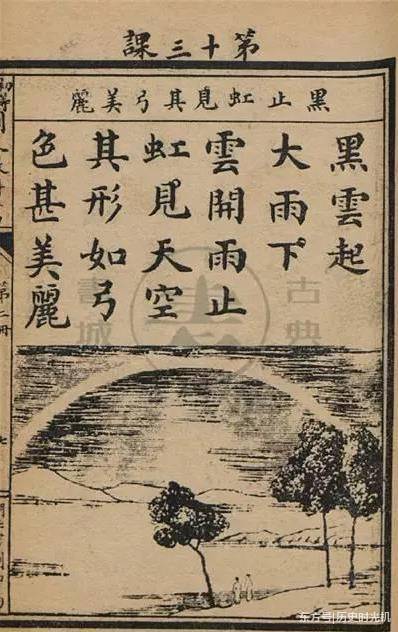 第十三課
黑止虹見其弓美麗
黑雲起
大雨下
雲開雨止
虹見天空
其形如弓
色甚美麗
第二冊
七
古典
書城
东方号|历史时光机